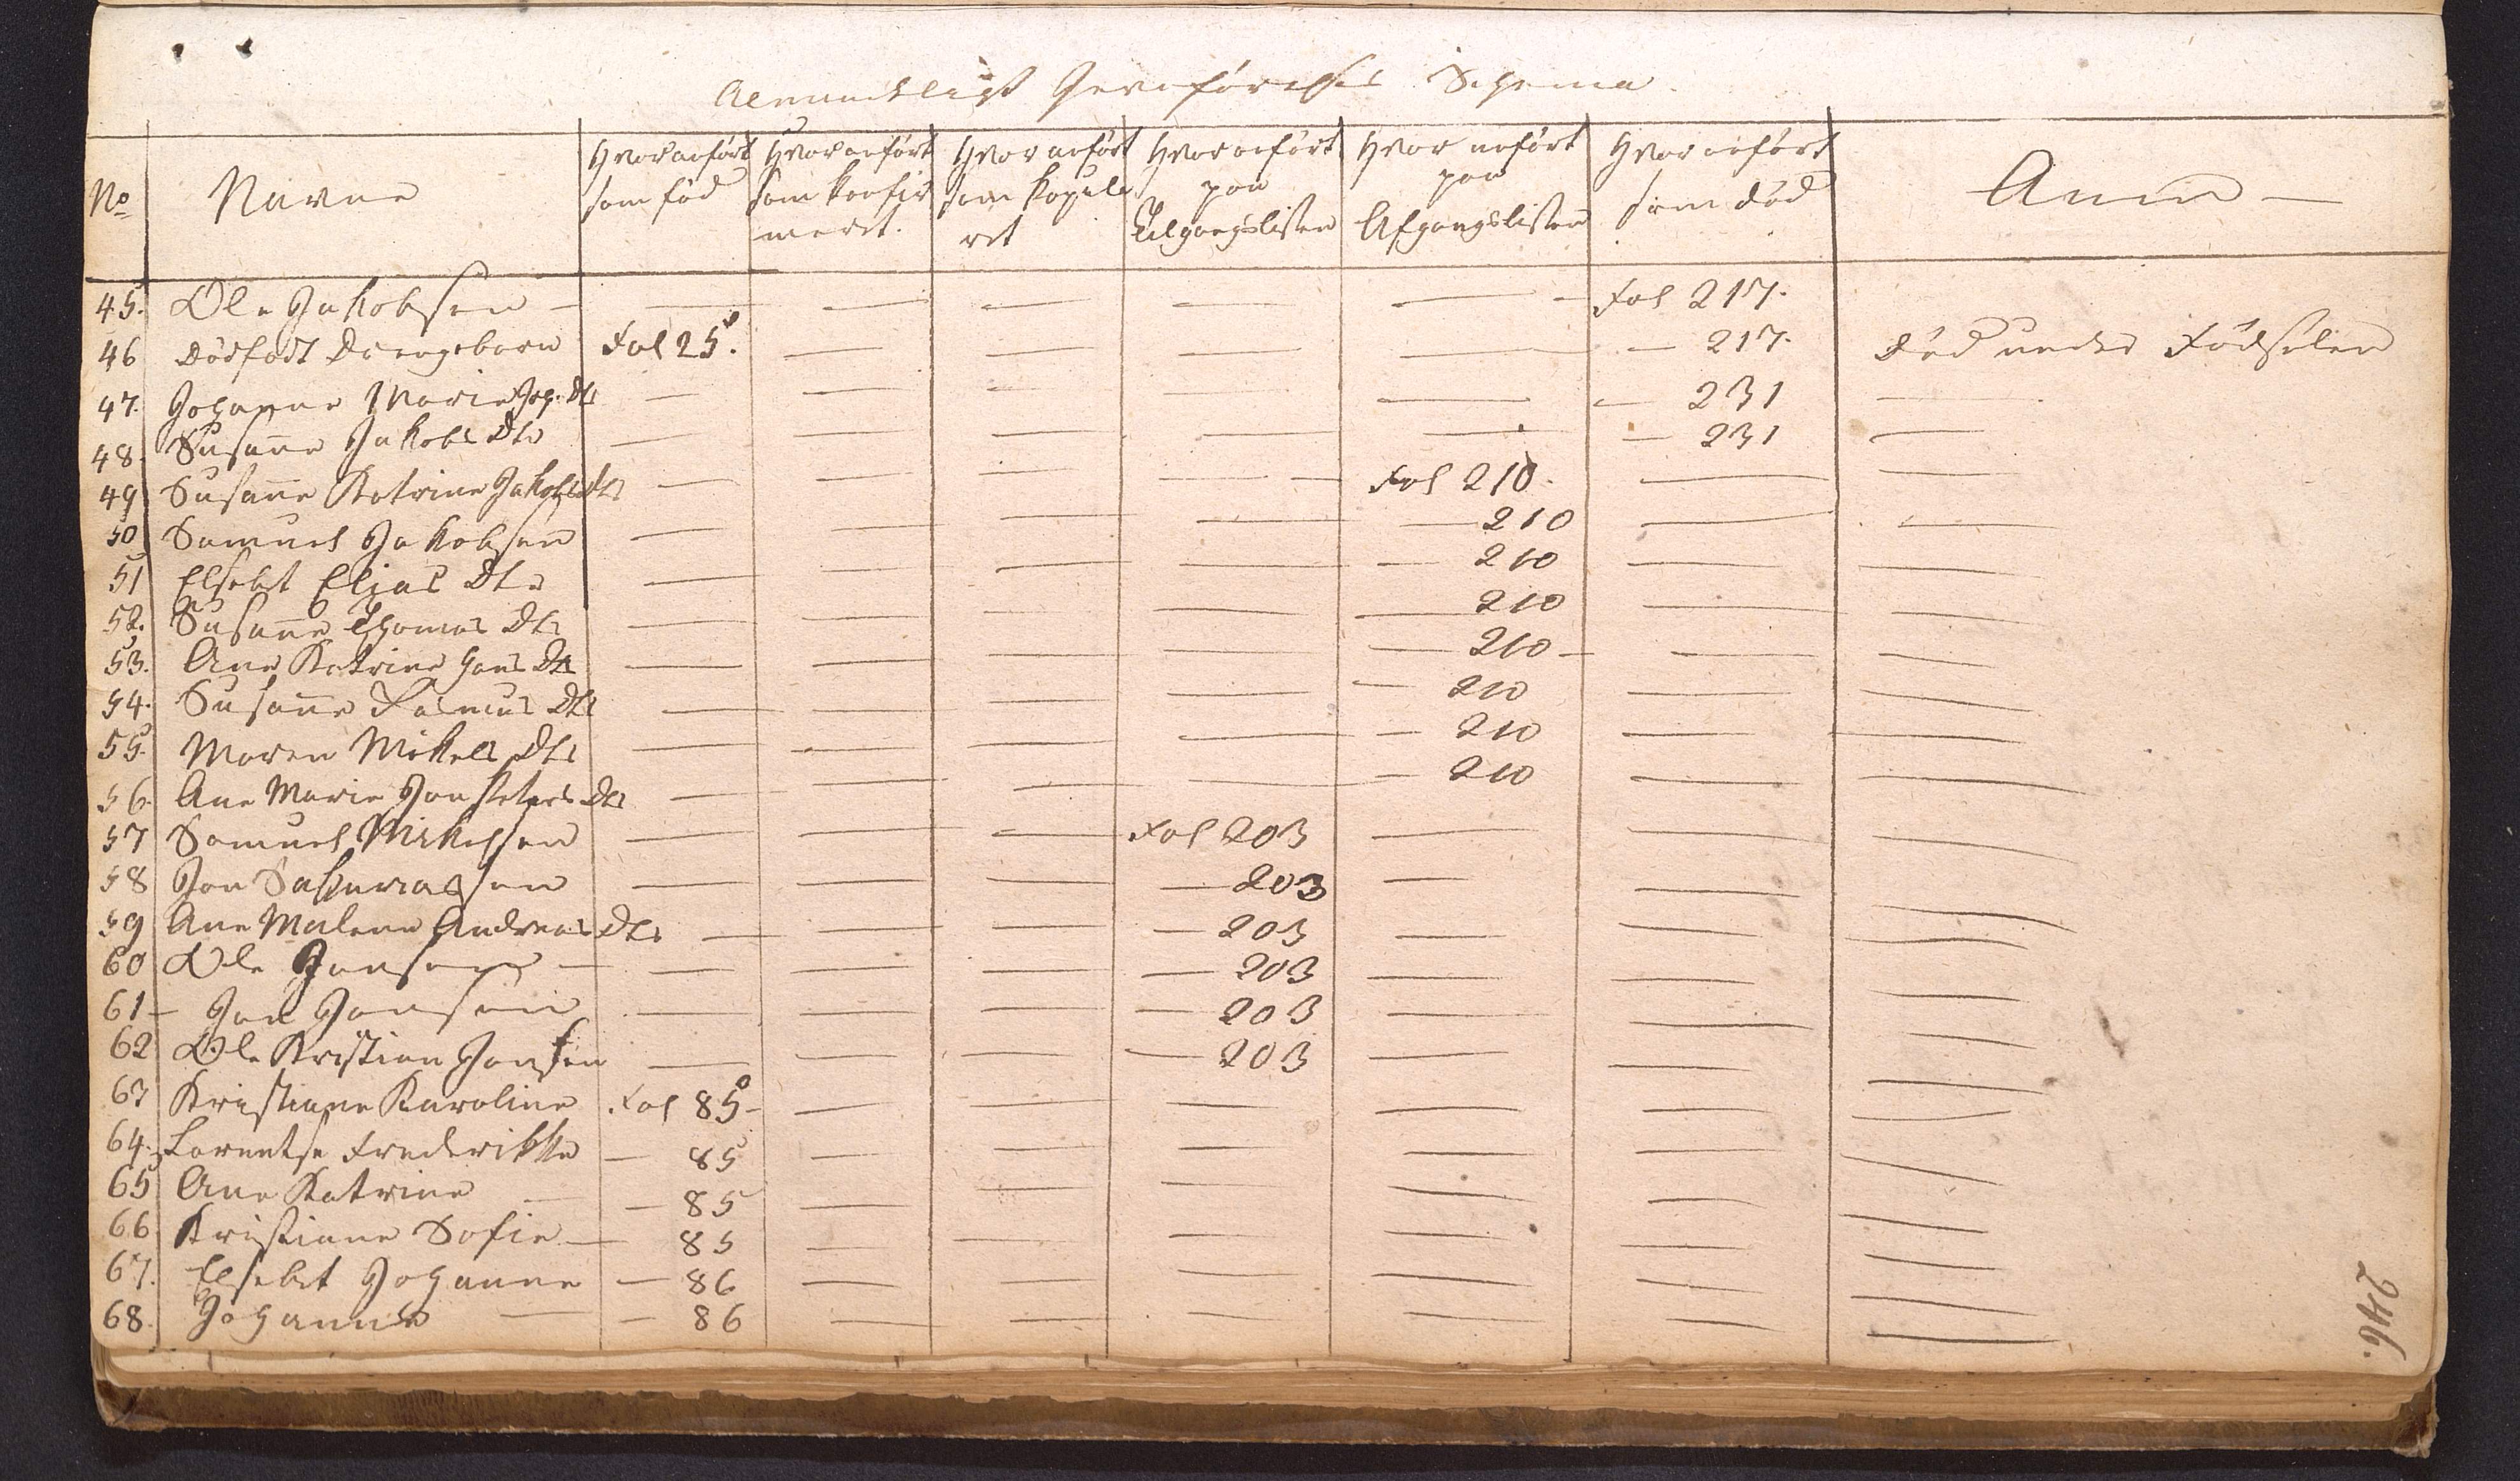 Almindeligt Jevnførelses Schema.
No Navne Hvor anført som fød Hvor anført som konfirmeret. Hvor anført som kopuleret Hvor anført paa Tilgangslisten Hvor anført paa Afgangslisten Hvor anført som død Anm
45. Ole Jakobsen — — — — — — Fol 217.
46 Dødfødt Drengebarn Fol 25. — — — — — 217. Død under Fødselen
47. Johanne Marie Joh. Dtr — — — — — — 231 —
48. Susanne Jakobs Dtr — — — — — — 231 —
49 Susanne Katrine Jakobsdtr — — — — Fol 210. — —
50 Samuel Jakobsen — — — — — 210 — —
51 Elsebet Elias Dtr — — — — — 210 — —
52. Susanne Thomas Dtr — — — — — 210 — —
53. Ane Katrine Hans Dtr — — — — — 210 — — —
54. Susanne Rasmus Dtr — — — — — 210 — —
55. Maren Mikels Dtr — — — — — 210 — —
56. Ane Marie Jon Peters Dtr — — — — — 210 — —
57 Samuel Mikelsen — — — Fol 203 — — —
58 Jon Sakariassen — — — — 203 — — —
59 Ane Malene Andreas Dtr — — — — 203 — — —
60 Ole Jonsen — — — — — 203 — — —
61 — Jon Jonsen — — — — 203 — — —
62 Ole Kristian Jonsen — — — — 203 — — —
63 Kristiane Karoline Fol 85 — — — — — — —
64. Lorentse Frederikke — 85 — — — — — —
65 Ane Katrine — — 85 — — — — — —
66 Kristiane Sofie — — 85 — — — — — —
67. Elsebet Johanne — 86 — — — — — —
68. Johanne — — 86 — — — — — —
246.